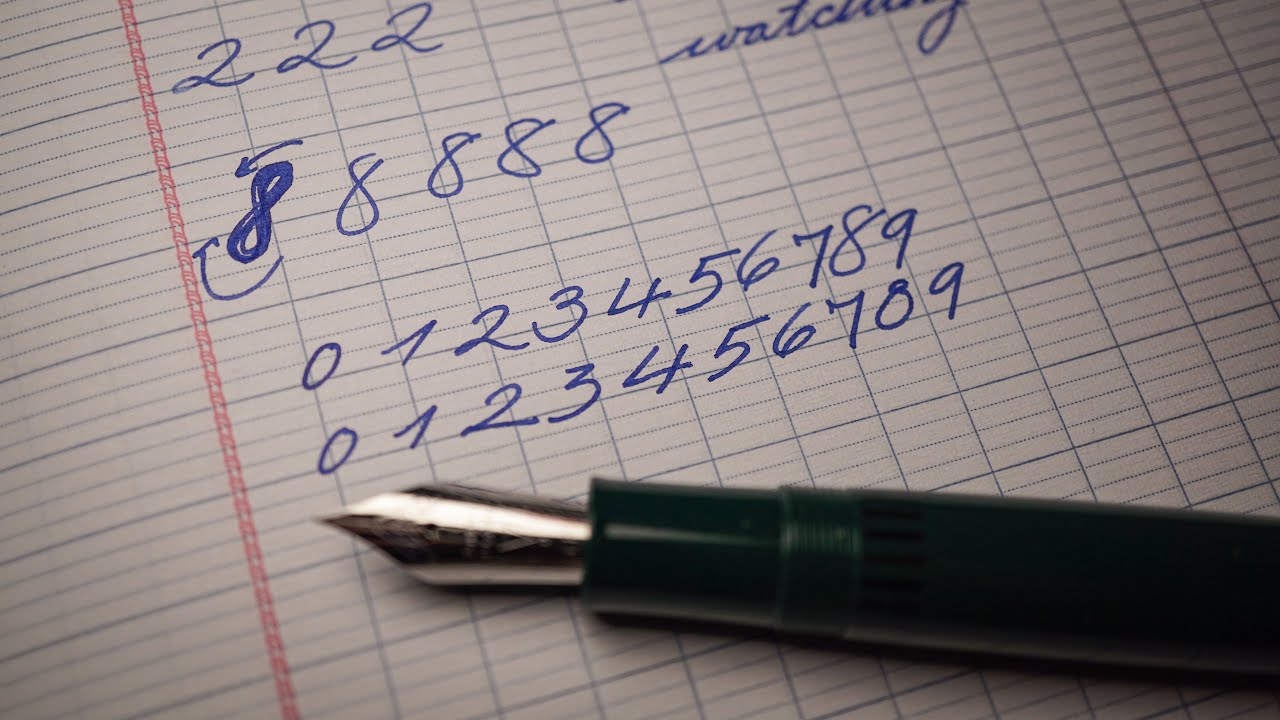 watching
2 2 2
8 8 8 8 8
0 1 2 3 4 5 6 7 8 9
0 1 2 3 4 5 6 7 8 9